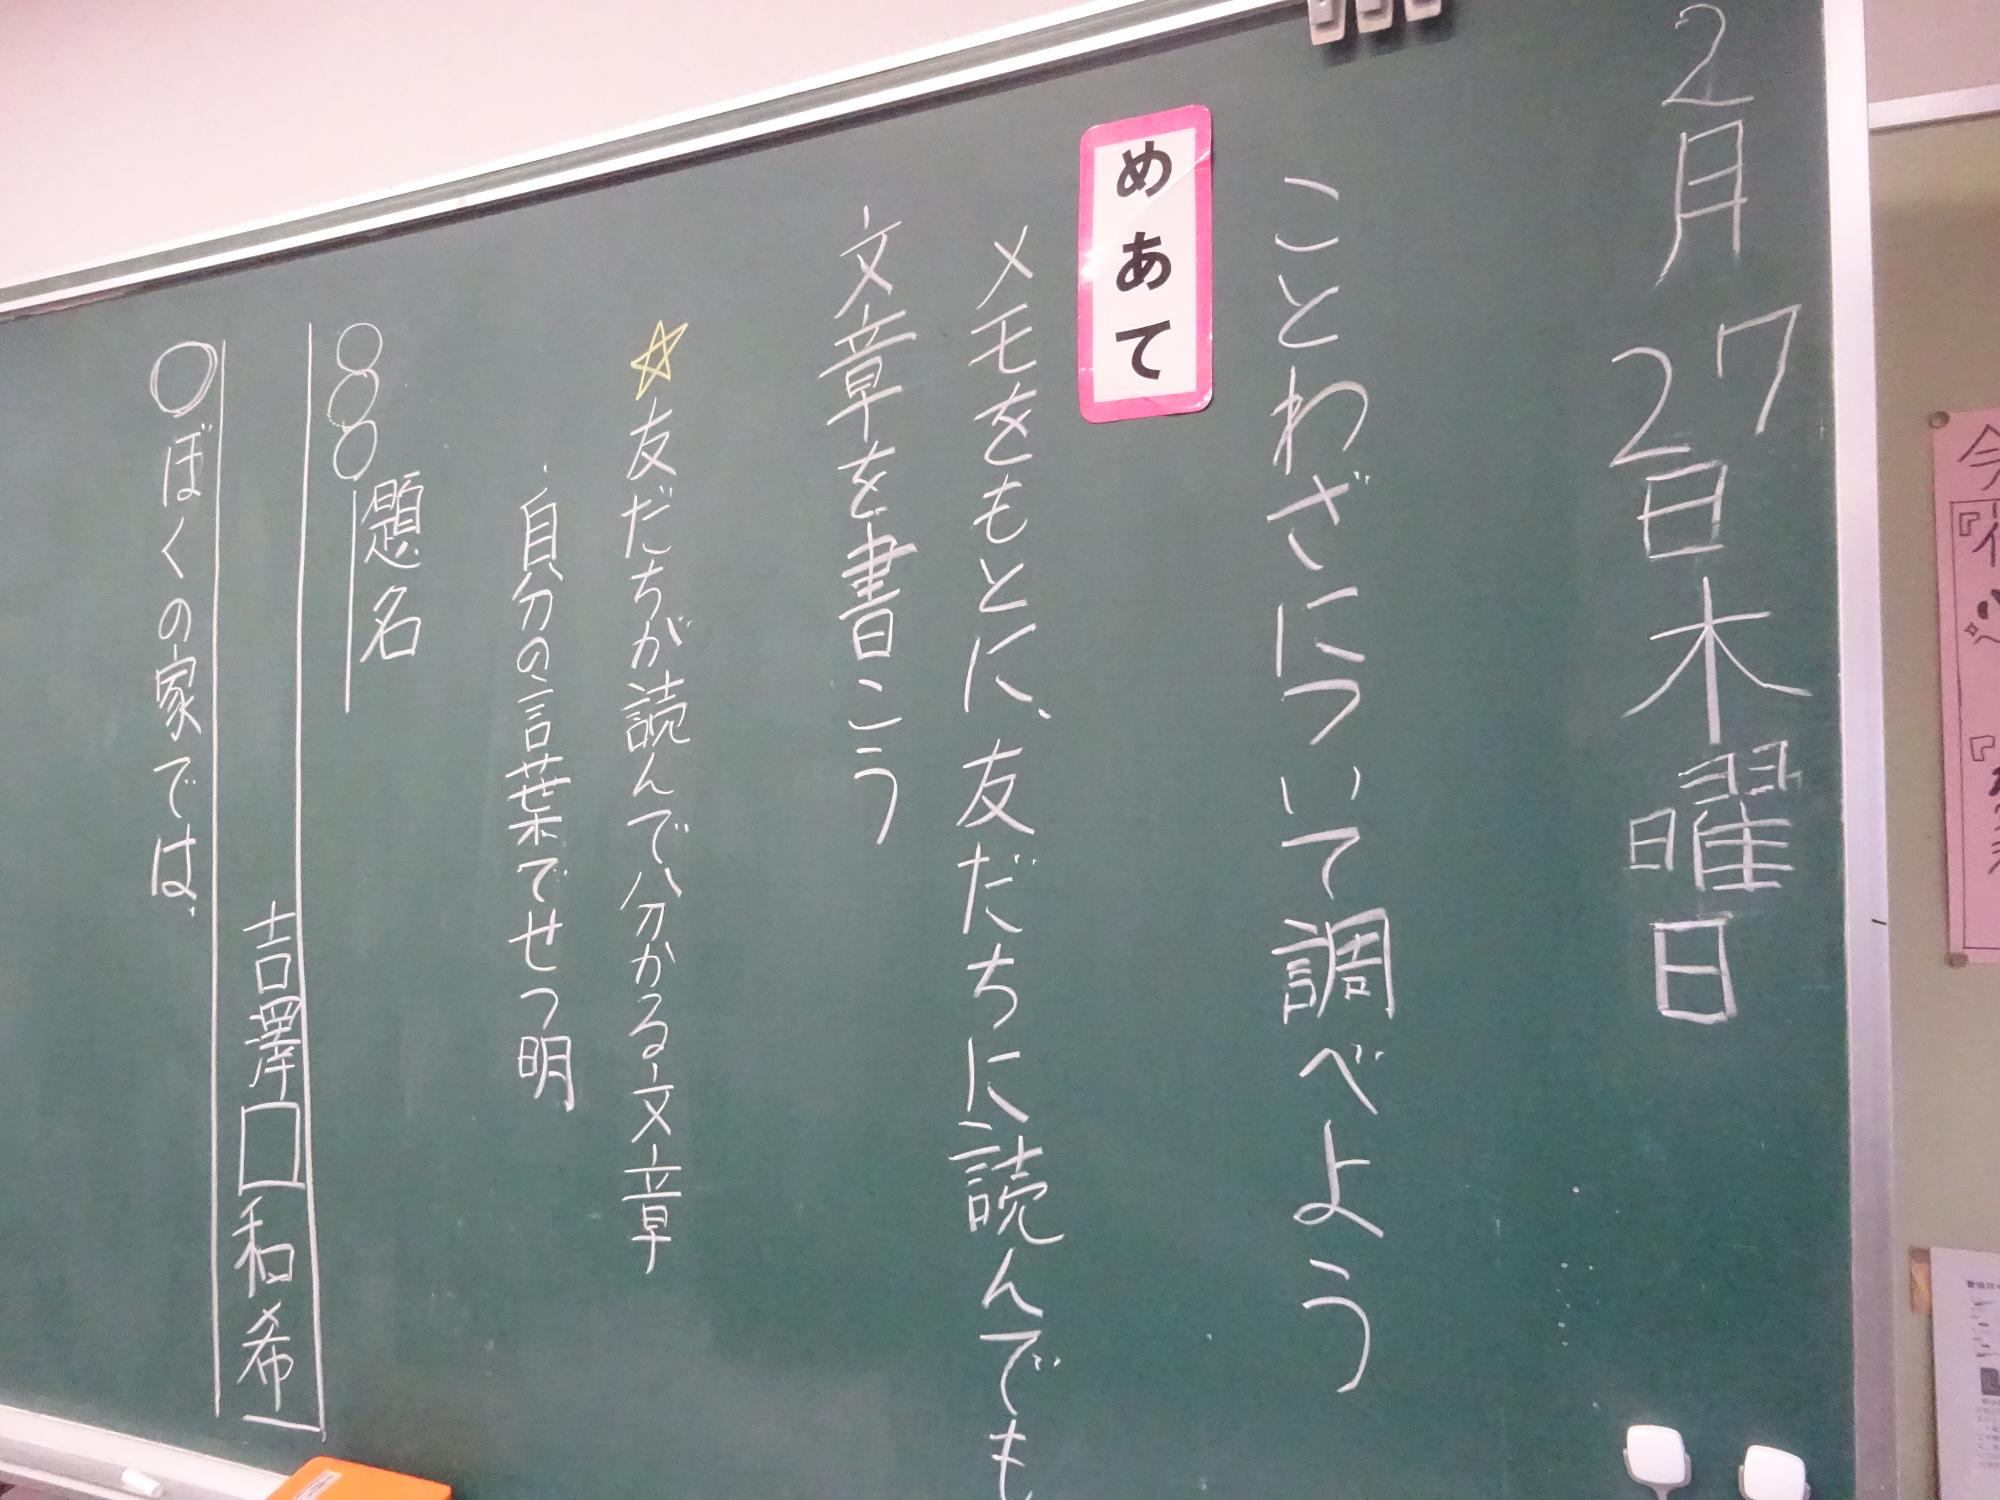 2月27日木曜日
ことわざについて調べよう
めあて
メモをもとに、友だちに読んでも
文章を書こう
☆友だちが読んで分かる文章
・自分の言葉でせつ明
題名
○○○
吉澤□和希
○ぼくの家では、
今